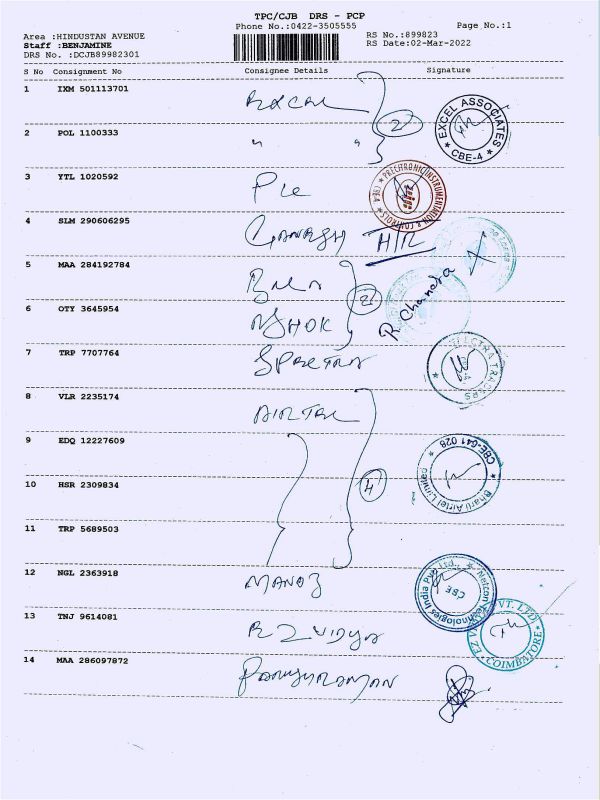 TPC/CJB DRS - PCP
Phone No.:0422-3505555
Page No.:1
Area :HINDUSTAN AVENUE
Staff :BENJAMINE
DRS No. :DCJB89982301
RS No.:899823
RS Date:02-Mar-2022
S No Consignment No Consignee Details Signature
1 IXM 501113701 Excel 2
EXCEL ASSOCIATES * CBE-4 *
2 POL 1100333 " "
3 YTL 1020592 Pie
PRECITRONIC INSTRUMENTATION & CONTROLS * CBE-4 *
4 SLM 290606295 GANESH H/R
5 MAA 284192784 2
R Chandra
6 OTY 3645954 ASHOK
7 TRP 7707764
8 VLR 2235174 AIRTEL
9 EDQ 12227609
Bharti Airtel Limited * CBE-641 028 *
10 HSR 2309834 4
11 TRP 5689503
12 NGL 2363918 MANOJ
Netcon Technologies India Pvt. Ltd., * CBE
13 TNJ 9614081 EZ VIDYA
EZ VIDYA PVT. LTD * COIMBATORE *
14 MAA 286097872 PARASURAMAN